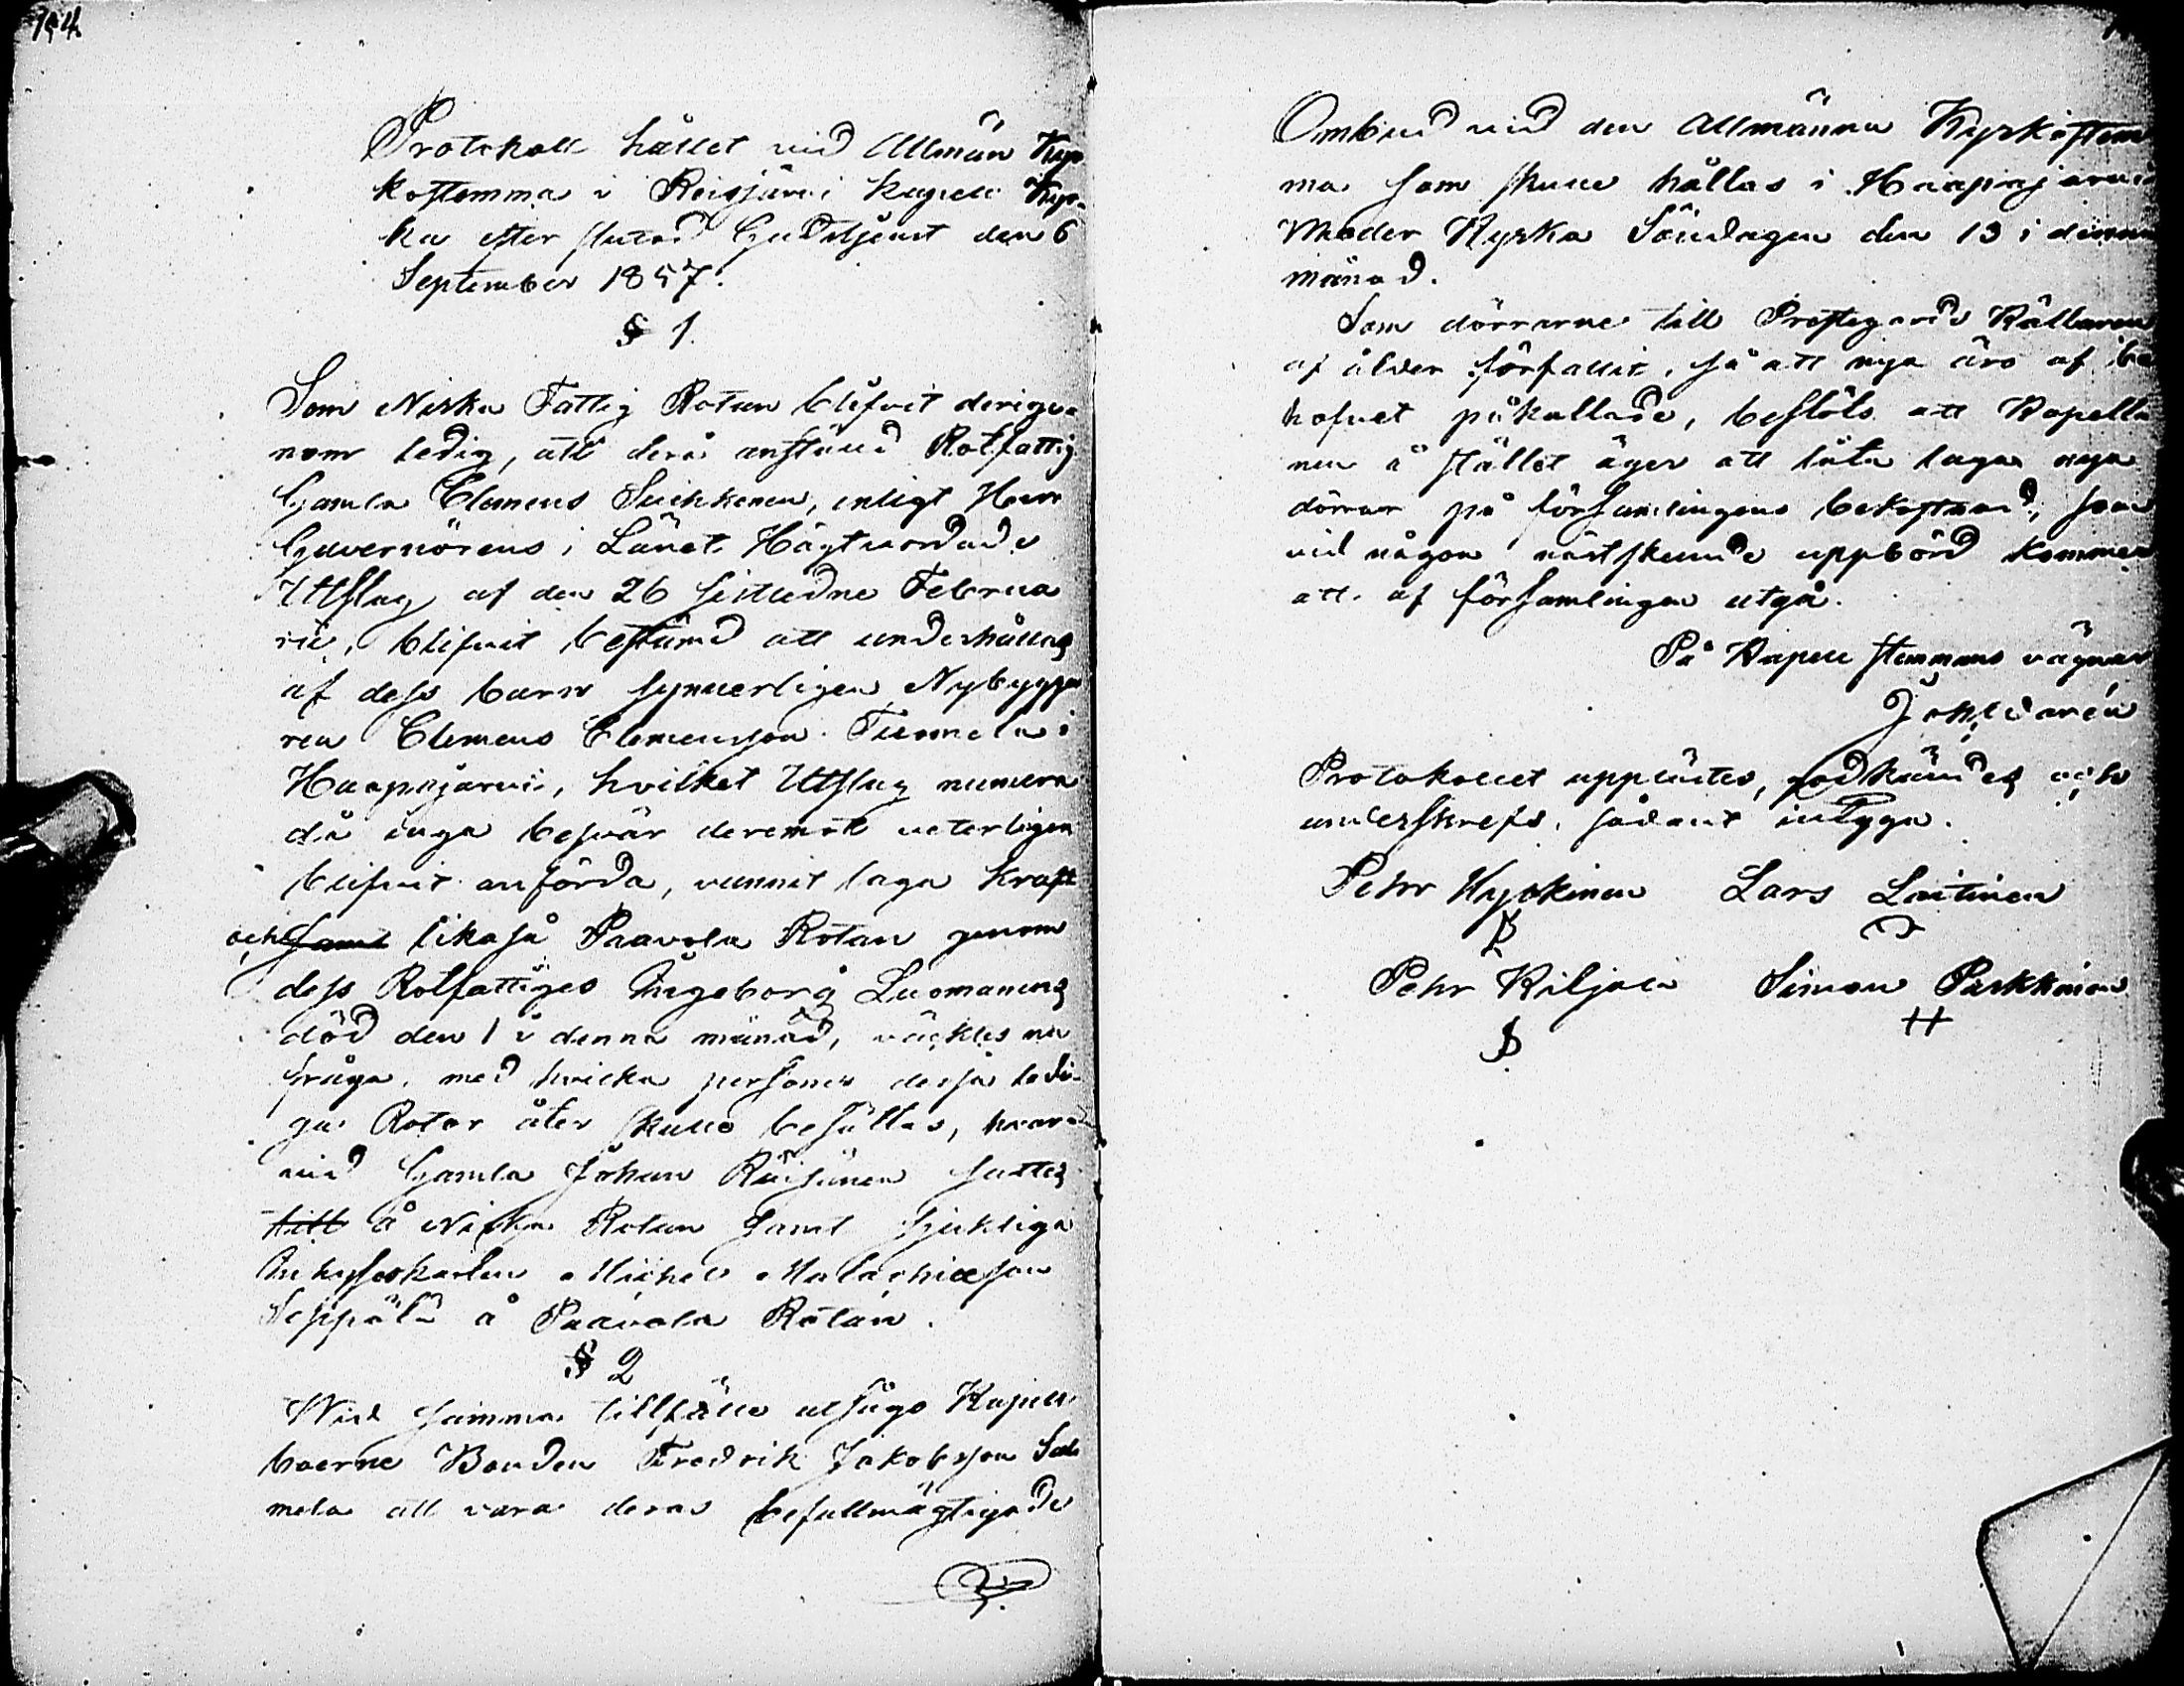 194.
Protokoll hållet vid Allmän Kyr-
kostemma i Reisjärvi kapell Kyr-
ka efter slutad Gudstjenst den 6
September 1857.
§ 1.
Som Niska Fattig Rotan blifvit derige-
nom ledig, att derå anstånd Rotfattig
Gamla Clemens Suikkanen, enligt Herr
Guvernörens i Länet Högtvordade
Utslag af den 26 sistledne Februa
rii, blifvit bestämd att underhållas
af dess barn synnerligen Nybygga
ren Clemens Clemensson Tuomela i
Haapajärvi, hvilket Utslag numera
då inga besvär deremot veterligen
blifvit anförda, vunnit laga kraft
och samt likaså Paavola Rotan genom
dess Rotfattiges Ingeborg Luomanens
död den 1 i denna månad, väcktes nu
fråga, med hvilka personer dessa ledi-
ga Rotar åter skulle besättas, hvar-
vid Gamla Johan Räisänen sattes
till å Niska Rotan samt sjukliga
Inhyseskarlen Michel Malachiasson
Seppälä å Paavola Rotan.
§ 2
Wid samma tillfälle utsågo Kapell
boerne Bonden Fredrik Jakobsson Sal
mela att vara deras befullmägtigade
Ombud vid den Allmänna Kyrkostem
ma som skulle hållas i Haapajärvi
Moder Kyrka Söndagen den 13 i denna
månad.
Som dörrarne till Prestegårds Källaren
af ålder förfallit, så att nya äro af be
hofvet påkallade, beslöts att Kapella
nen å stället äger att låta laga nya
dörrar på församlingens bekostnad, som
vid någon nästskeende uppbörd kommer
att af församlingen utgå.
På Kapell stemmans vägnar
Joh.
Protokollet upplästes, godkändes och
underskrefs, sådant intyga.
Pehr Hyökinen Lars Laitinen
Pehr Kiljala Simon Parkkinen